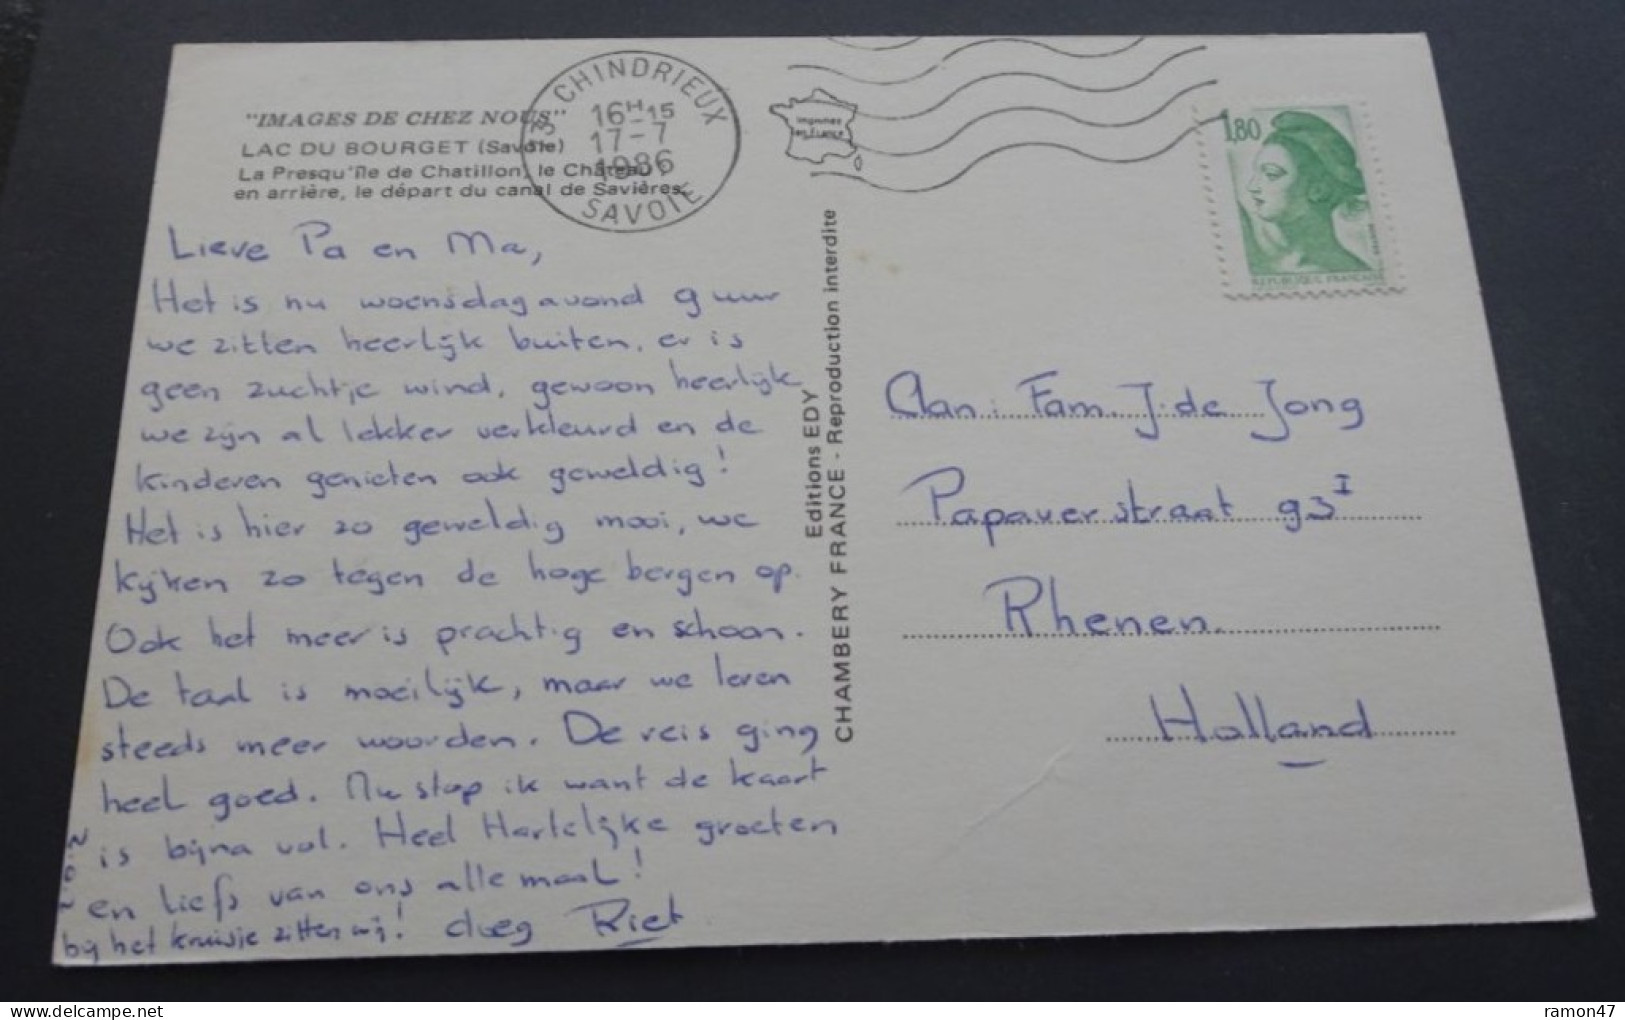 "IMAGES DE CHEZ NOUS"
LAC DU BOURGET (Savoie)
La Presqu'île de Chatillon, le Château ;
en arrière, le départ du canal de Savières.
73 CHINDRIEUX
16H-15
17-7
1986
SAVOIE
imprimez
en France
1,80
REPUBLIQUE FRANÇAISE
Lieve Pa en Ma,
Het is nu woensdagavond 9 uur
we zitten heerlijk buiten, er is
geen zuchtje wind, gewoon heerlijk
we zijn al lekker verkleurd en de
kinderen genieten ook geweldig!
Het is hier zo geweldig mooi, we
kijken zo tegen de hoge bergen op.
Ook het meer is prachtig en schoon.
De taal is moeilijk, maar we leren
steeds meer woorden. De reis ging
heel goed. Nu stop ik want de kaart
is bijna vol. Heel Hartelijke groeten
en liefs van ons allemaal!
z.o.z
bij het kruisje zitten wij! doeg Riet
Editions EDY
CHAMBERY FRANCE - Reproduction interdite
Aan: Fam. J. de Jong
Papaverstraat 93 I
Rhenen
Holland
ramon47